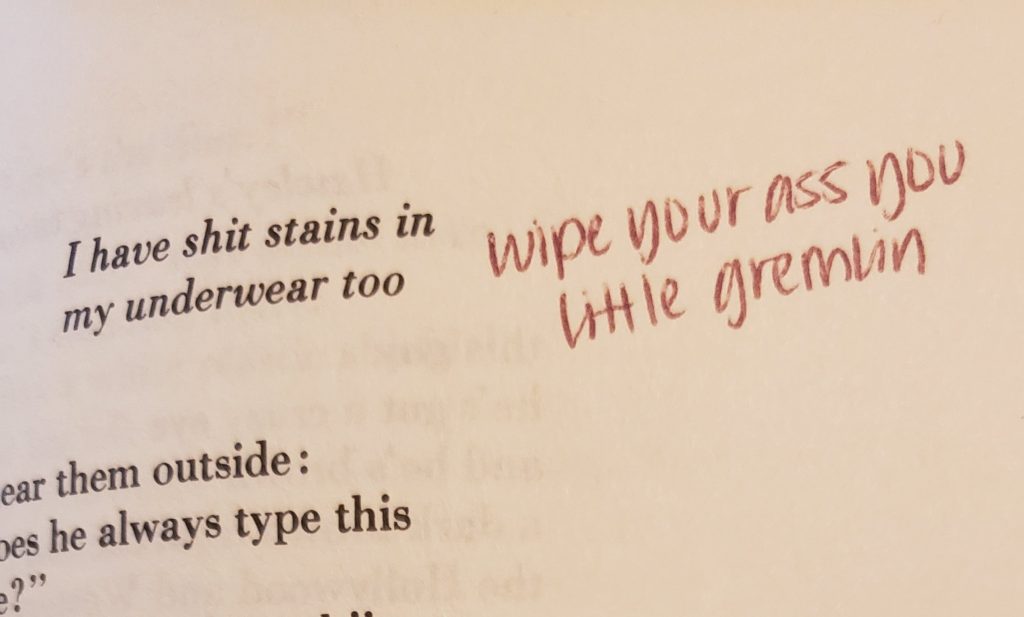 I have shit stains in
my underwear too
wipe your ass you
little gremlin
ear them outside:
oes he always type this
e?”